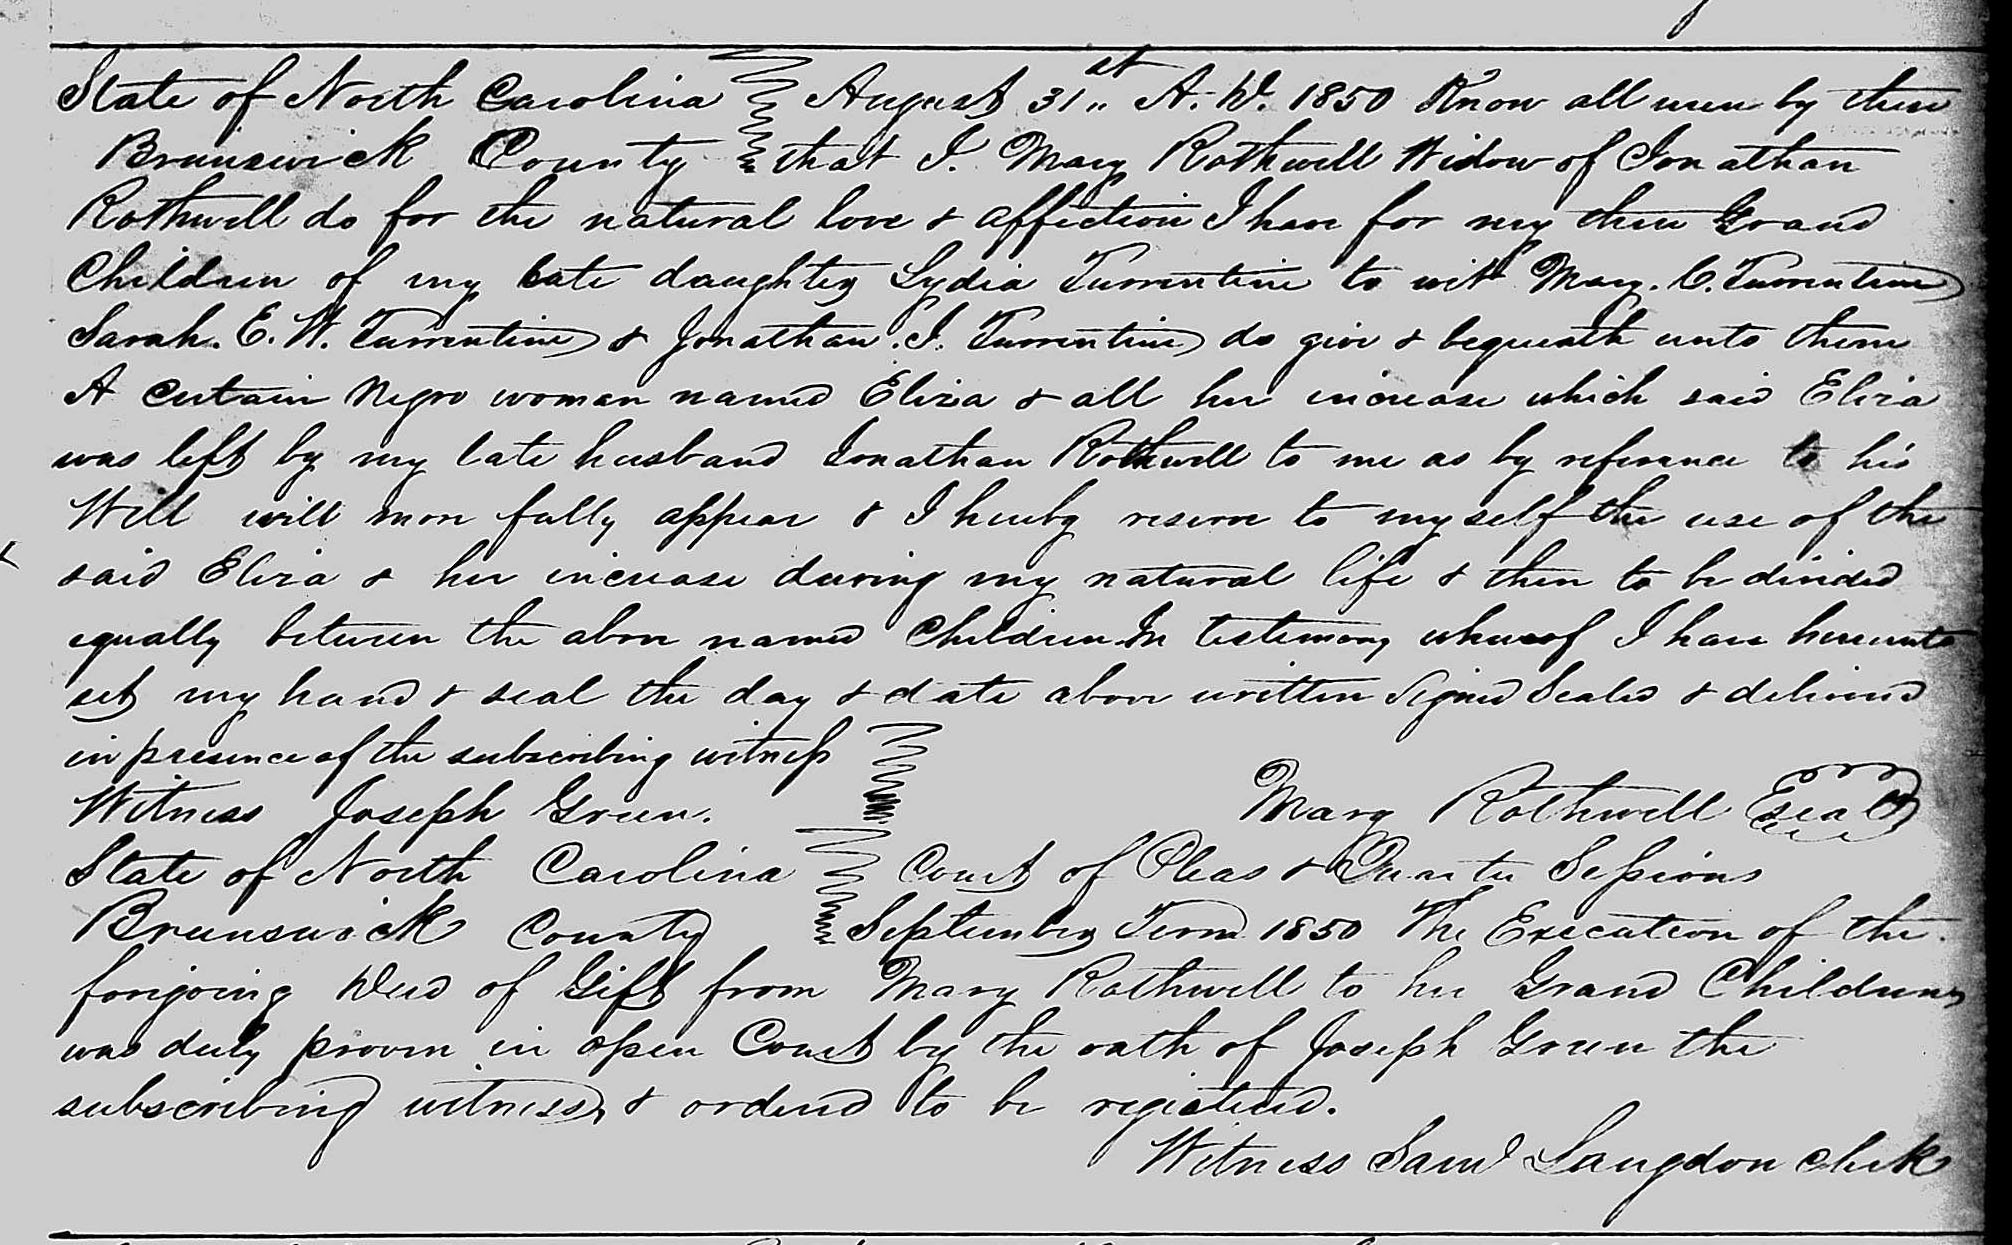 State of North Carolina August 31st A.D. 1850 Know all men by these
Brunswick County that I. Mary Rothwell Widow of Jonathan
Rothwell do for the natural love & affection I have for my three Grand
Children of my late daughter Lydia Turrentine to wit Mary. C. Turrentine
Sarah. E. W. Turrentine & Jonathan. I. Turrentine do give & bequeath unto them
A certain Negro woman named Eliza & all her increase which said Eliza
was left by my late husband Jonathan Rothwell to me as by referance to his
Will will more fully appear & I hereby reserve to myself the use of the
said Eliza & her increase during my natural life & then to be divided
equally between the above named Children. In testimony whereof I have hereunto
set my hand & seal the day & date above written Signed Sealed & delivered
in presence of the subscribing witness
Witness Joseph Green. Mary Rothwell Seal
State of North Carolina Court of Pleas & Quarter Sessions
Brunswick County September Term 1850 The Execution of the
forigoing Deed of Gift from Mary Rothwell to her Grand Children
was duly proven in open Court by the oath of Joseph Green the
subscribing witness, & ordered to be registered.
Witness Saml Langdon clerk